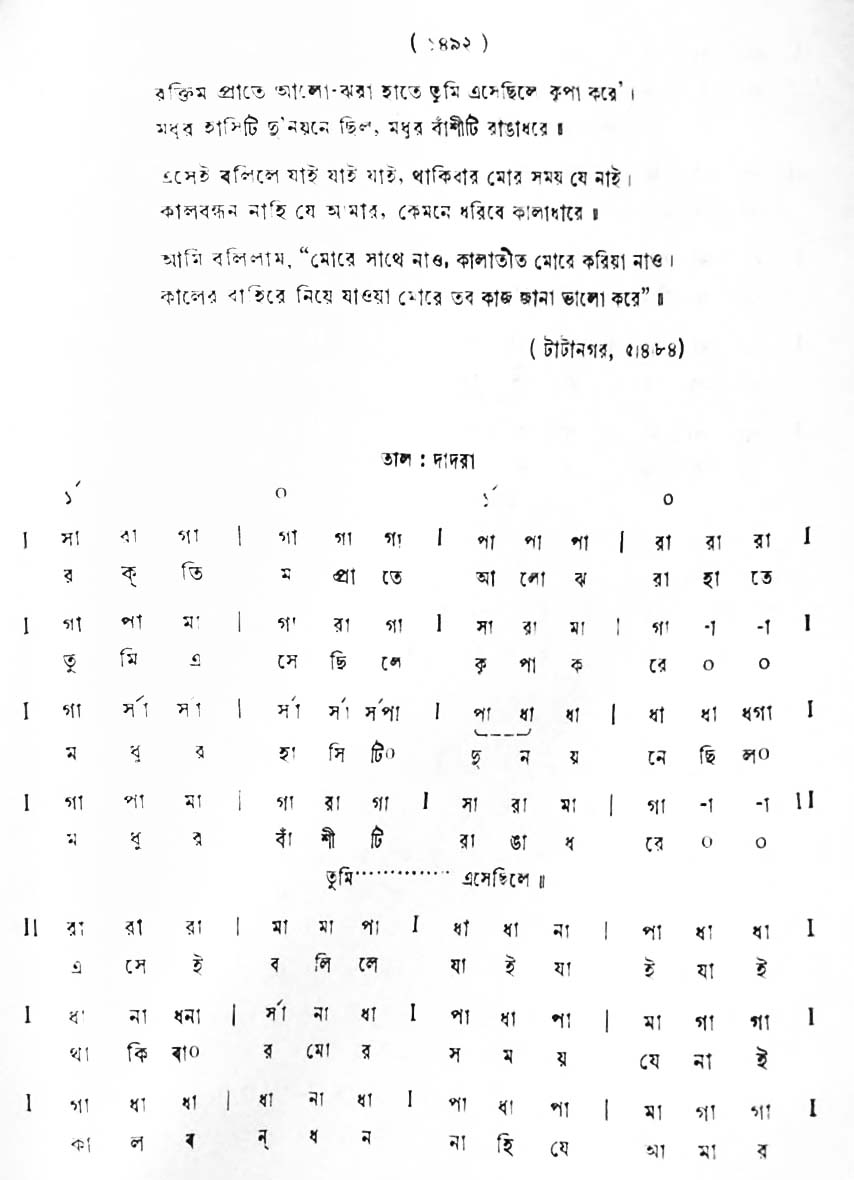 ( ১৪৯২ )
রক্তিম প্রাতে আলো-ঝরা হাতে তুমি এসেছিলে কৃপা করে'।
মধুর হাসিটি দু'নয়নে ছিল, মধুর বাঁশীটি রাঙাধরে॥
এসেই বলিলে যাই যাই যাই, থাকিবার মোর সময় যে নাই।
কালবন্ধন নাহি যে আমার, কেমনে ধরিবে কালাধারে॥
আমি বলিলাম, “মোরে সাথে নাও, কালাতীত মোরে করিয়া নাও।
কালের বাহিরে নিয়ে যাওয়া মোরে তব কাজ জানা ভালো করে”॥
( টাটানগর, ৫।৪।৮৪)
তাল : দাদরা
১́ ০ ১́ ০
I সা রা গা | গা গা গা I পা পা পা | রা রা রা I
র ক্ তি ম প্রা তে আ লো ঝ রা হা তে
I গা পা মা | গা রা গা I সা রা মা | গা -া -া I
তু মি এ সে ছি লে কৃ পা ক রে ০ ০
I গা র্সা র্সা | র্সা র্সা র্সপা I পা ধা ধা | ধা ধা ধগা I
ম ধু র হা সি টি০ দু ন য় নে ছি ল০
I গা পা মা | গা রা গা I সা রা মা | গা -া -া II
ম ধু র বাঁ শী টি রা ঙা ধ রে ০ ০
তুমি.............. এসেছিলে॥
II রা রা রা | মা মা পা I ধা ধা না | পা ধা ধা I
এ সে ই ব লি লে যা ই যা ই যা ই
I ধা না ধনা | র্সা না ধা I পা ধা পা | মা গা গা I
থা কি বা০ র মো র স ম য় যে না ই
I গা ধা ধা | ধা না ধা I পা ধা পা | মা গা গা I
কা ল ব ন্ ধ ন না হি যে আ মা র